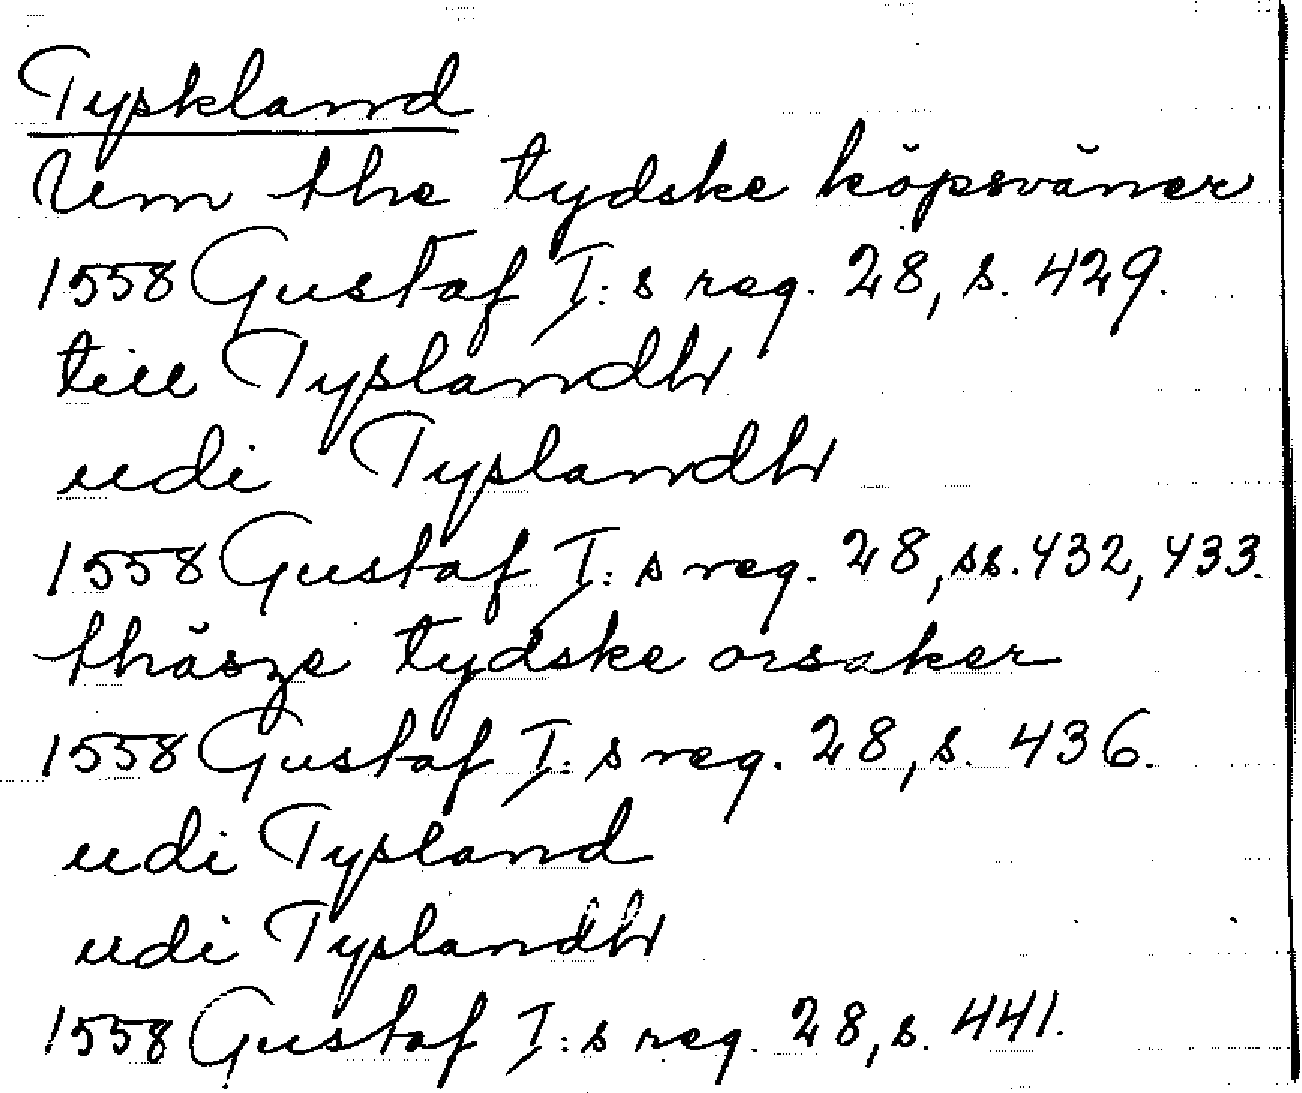 Tyskland
Um the tydske köpsväner
1558 Gustaf I:s reg. 28, s. 429.
till Tyslandh
udi Tyslandh
1558 Gustaf I:s reg. 28, ss. 432, 433.
thäsze tydske orsaker
1558 Gustaf I:s reg. 28, s. 436.
udi Tysland
udi Tyslandh
1558 Gustaf I:s reg. 28, s. 441.